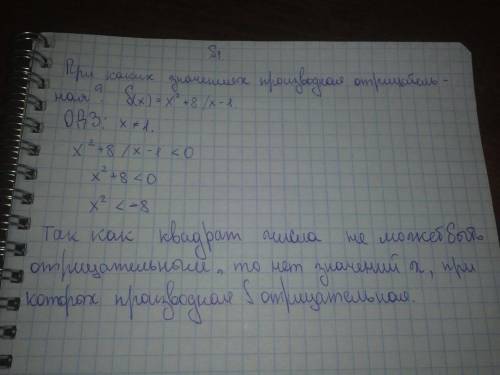 S1
При каких значениях производная отрицатель-
ная? f(x)=x²+8/x-1
ОДЗ: x≠1.
x²+8/x-1<0
x²+8<0
x²<-8
Так как квадрат числа не может быть
отрицательным, то нет значений x, при
которых производная f отрицательная.